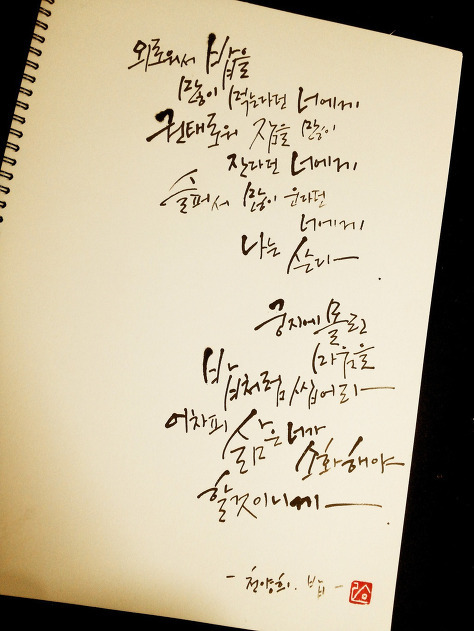 외로워서 밥을
많이 먹는다던 너에게
권태로워 잠을 많이
잔다던 너에게
슬퍼서 많이 운다던
너에게
나는 쓴다
궁지에 몰린
마음을
밥처럼 씹어라
어차피 삶은 너가
소화해야
할것이니까
- 천양희. 밥 -